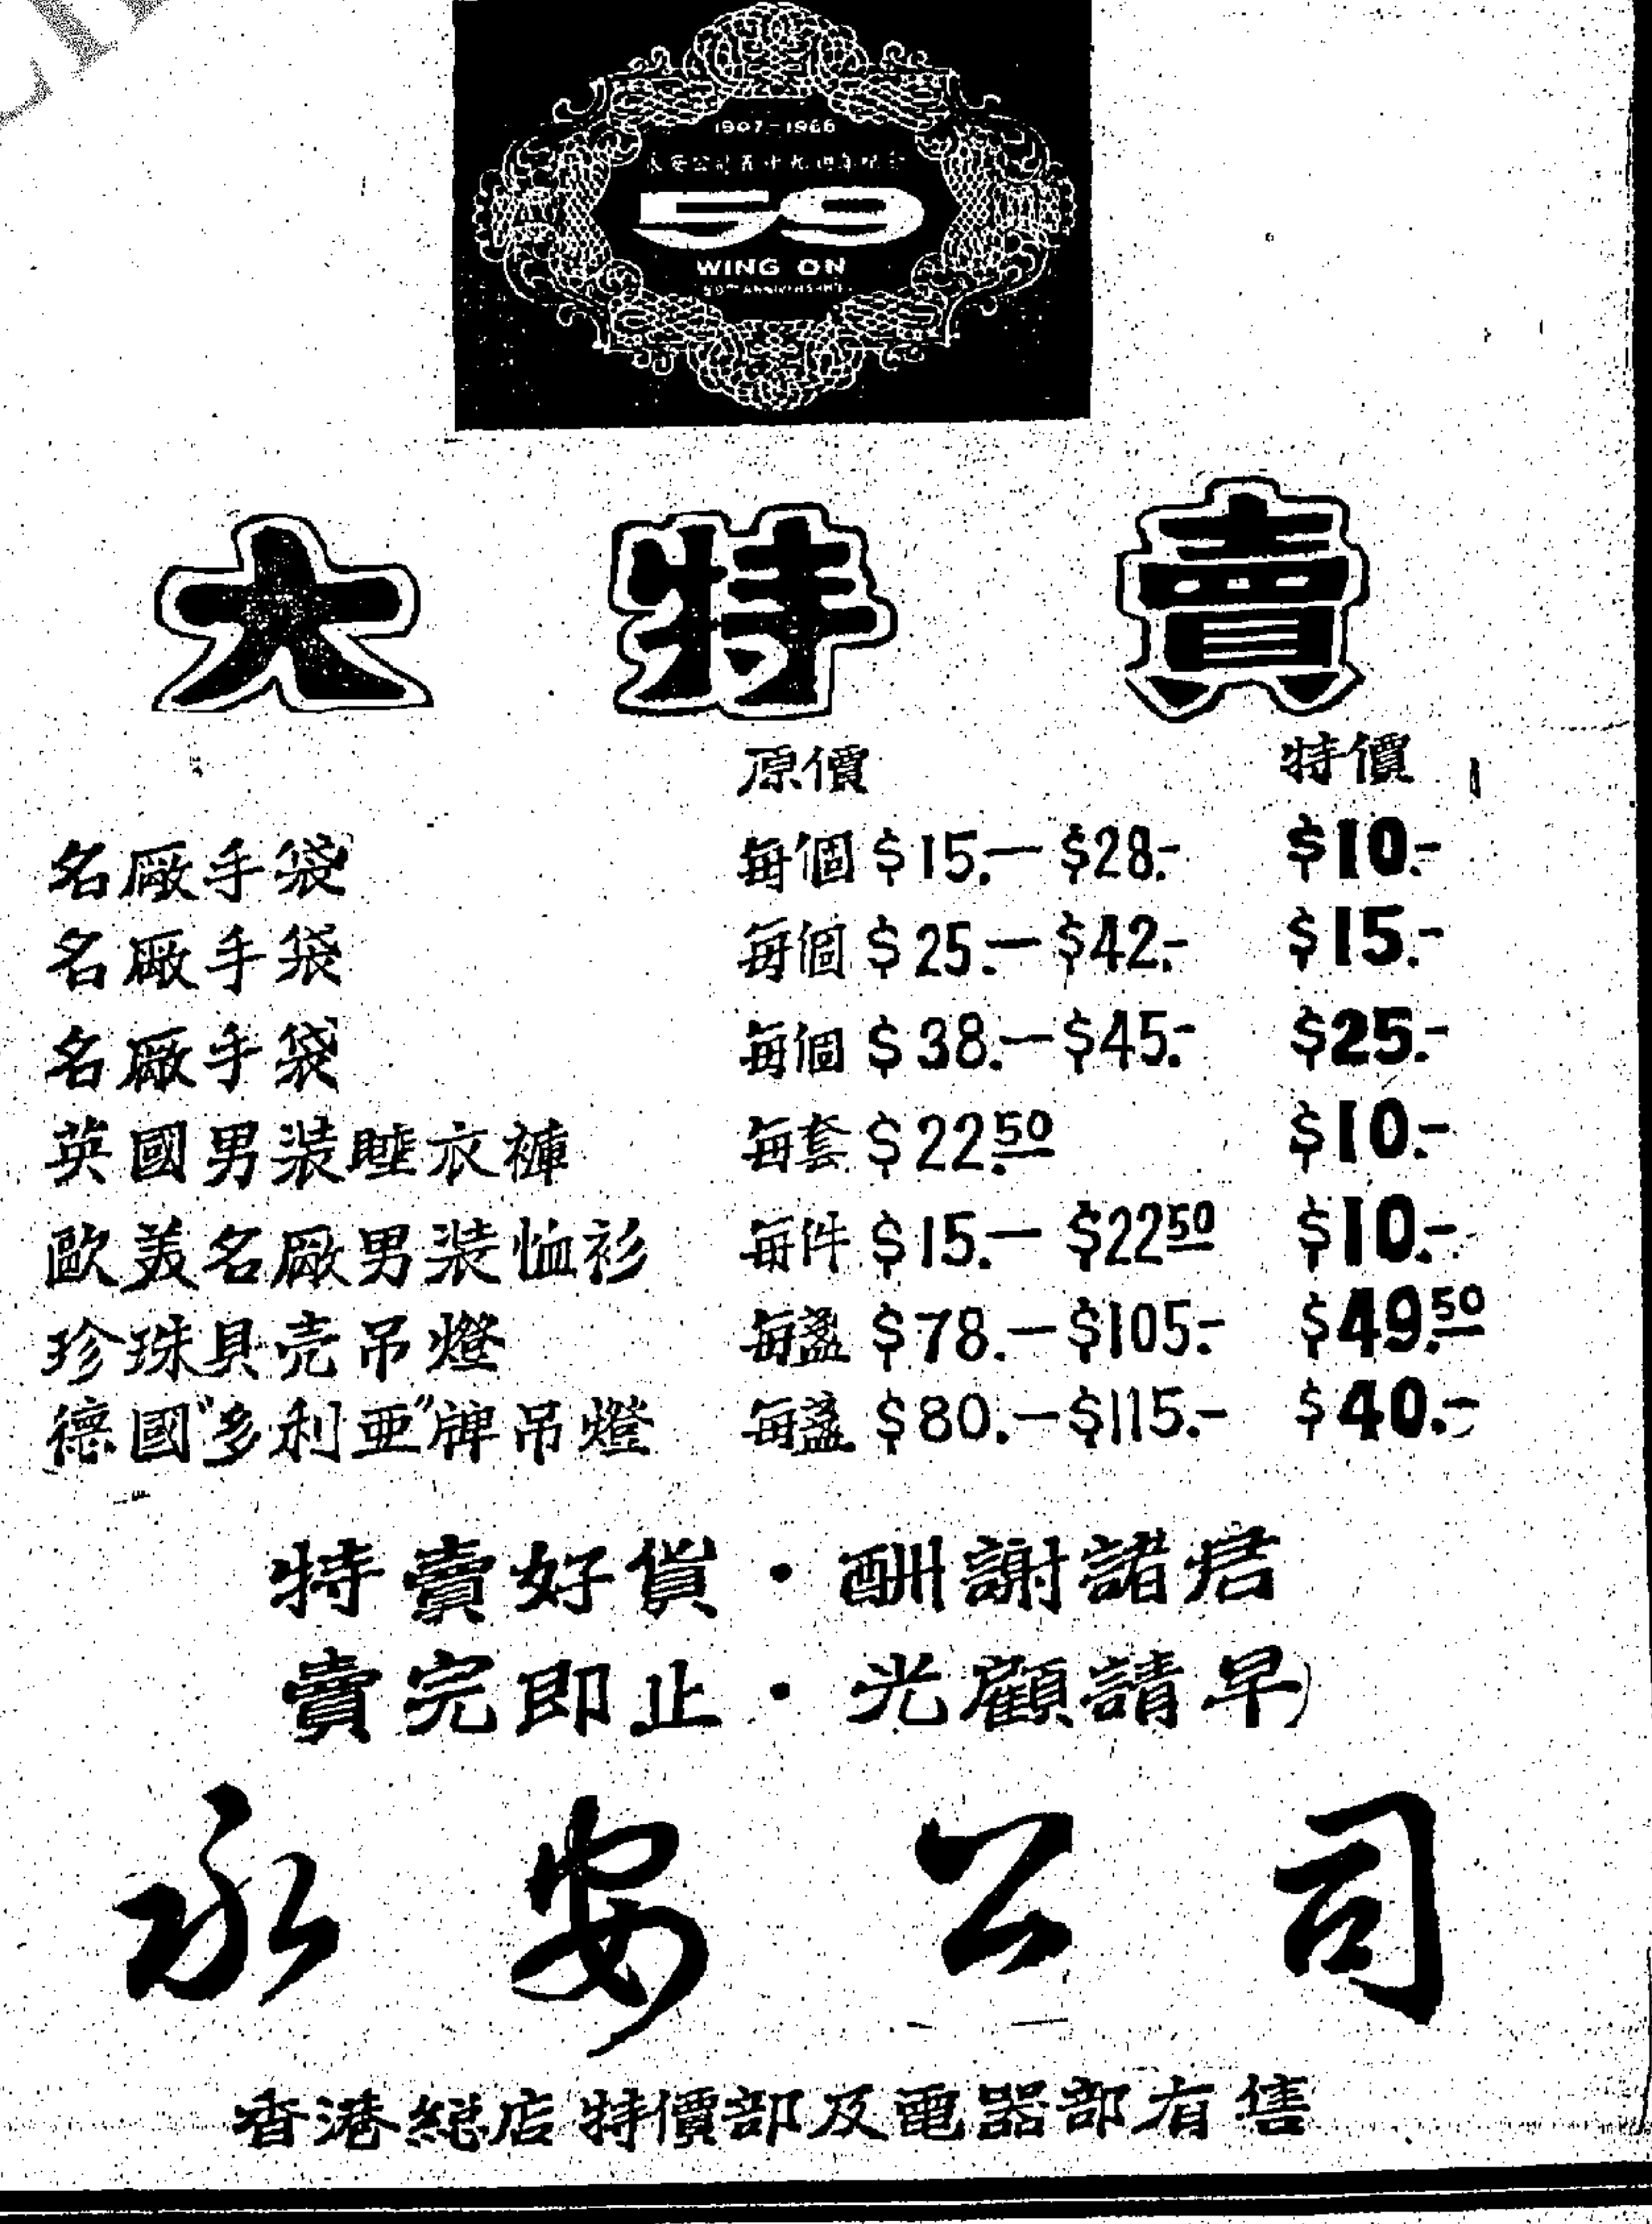 1907-1966
永安公司五十九週年紀念
59
WING ON
59TH ANNIVERSARY
大特賣
原價 特價
名廠手袋 每個 $15.— $28.- $10.-
名廠手袋 每個 $25.— $42.- $15.-
名廠手袋 每個 $38.— $45.- $25.-
英國男裝睡衣褲 每套 $22.50 $10.-
歐美名廠男裝恤衫 每件 $15.— $22.50 $10.-
珍珠貝壳吊燈 每盞 $78.— $105.- $49.50
德國"多利亜"牌吊燈 每盞 $80.— $115.- $40.-
特賣好貨・酬謝諸君
賣完即止・光顧請早
永安公司
香港總店特價部及電器部有售